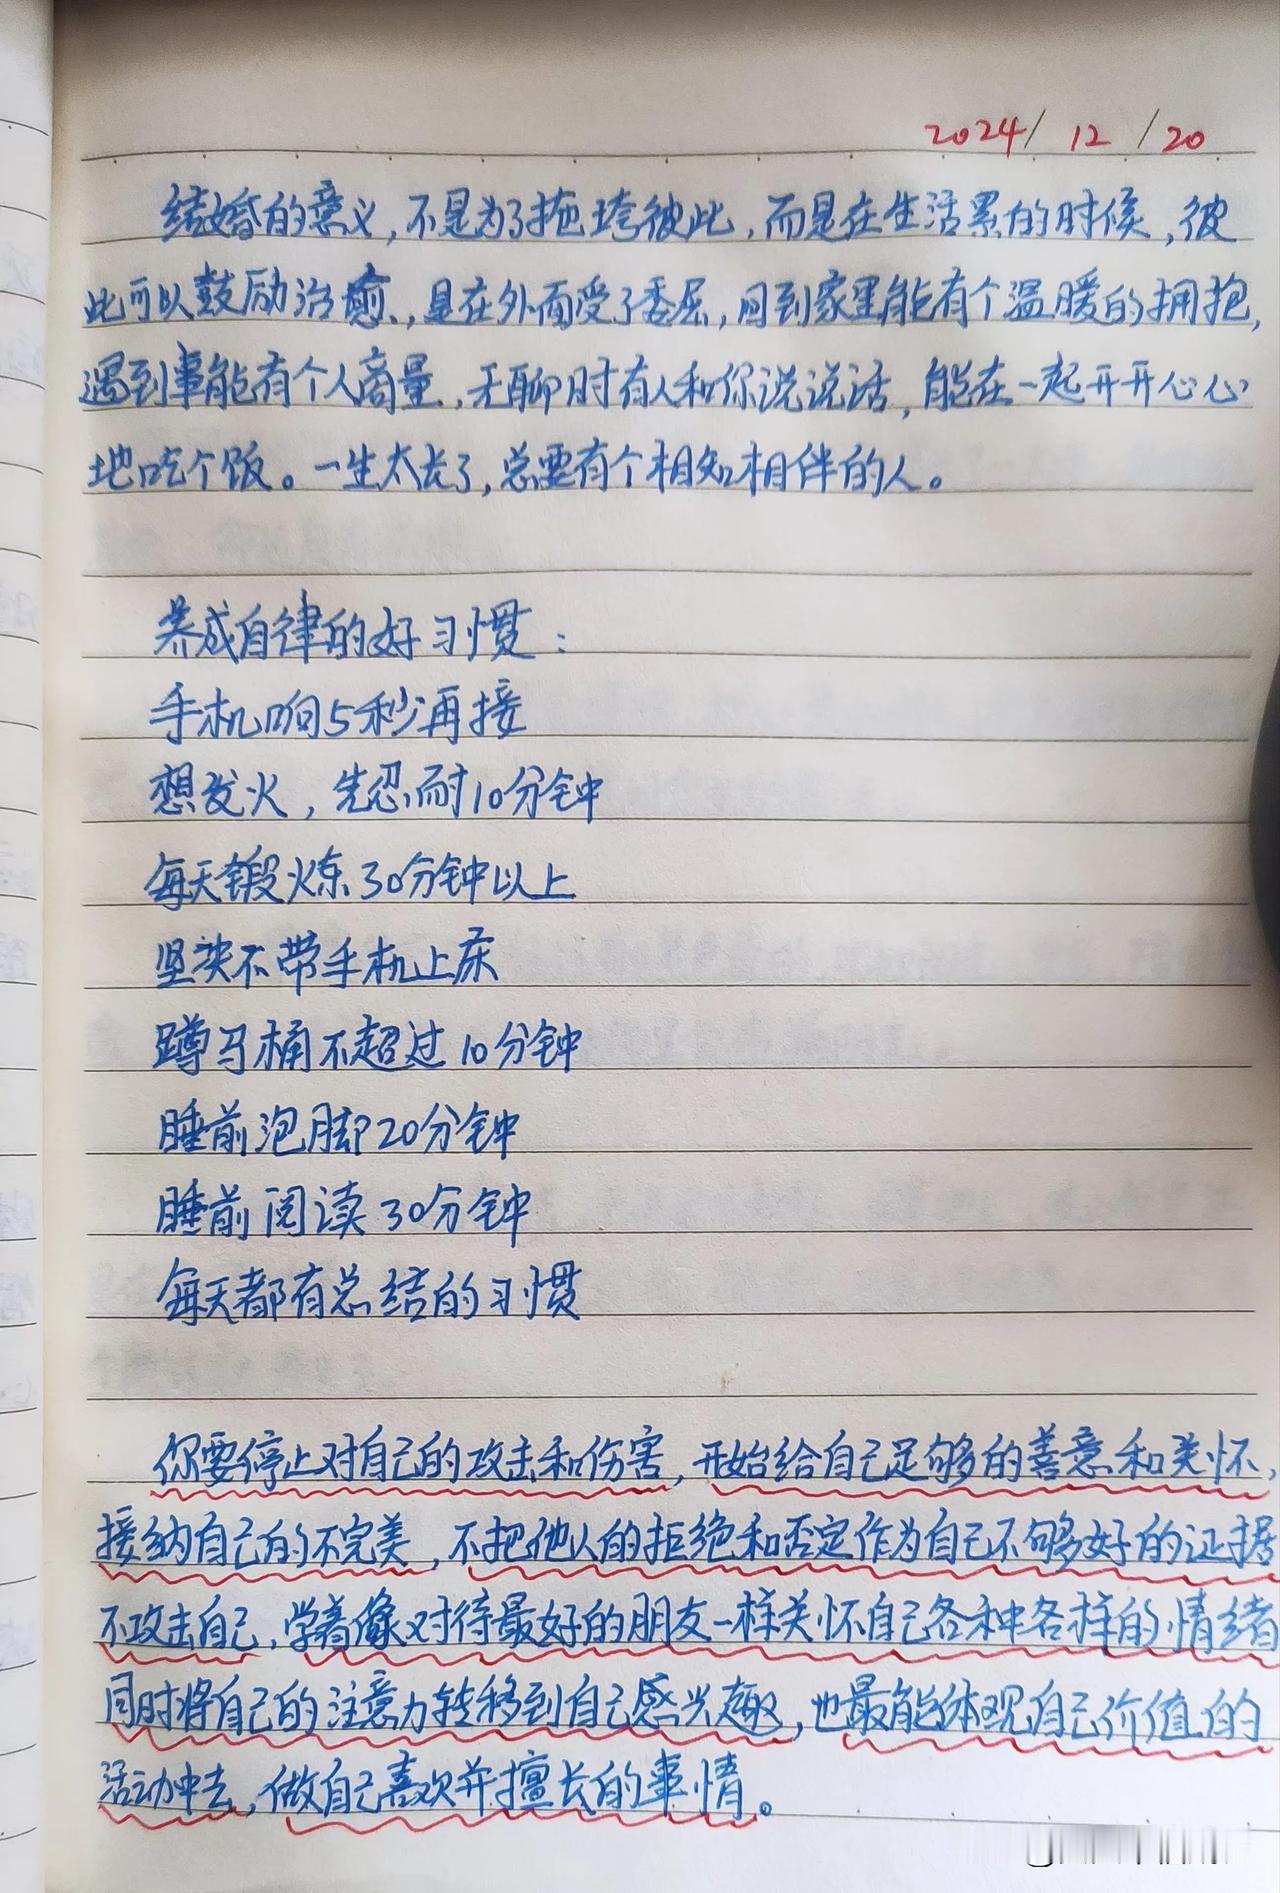 2024/12/20
结婚的意义,不是为了拖垮彼此,而是在生活累的时候,彼
此可以鼓励治愈,是在外面受了委屈,回到家里能有个温暖的拥抱,
遇到事能有个人商量,无聊时有人和你说说话,能在一起开开心心
地吃个饭。一生太长了,总要有个相知相伴的人。
养成自律的好习惯:
手机响5秒再接
想发火,先忍耐10分钟
每天锻炼30分钟以上
坚决不带手机上床
蹲马桶不超过10分钟
睡前泡脚20分钟
睡前阅读30分钟
每天都有总结的习惯
你要停止对自己的攻击和伤害,开始给自己足够的善意和关怀,
接纳自己的不完美,不把他人的拒绝和否定作为自己不够好的证据
不攻击自己,学着像对待最好的朋友一样关怀自己各种各样的情绪
同时将自己的注意力转移到自己感兴趣,也最能体现自己价值的
活动中去,做自己喜欢并擅长的事情。